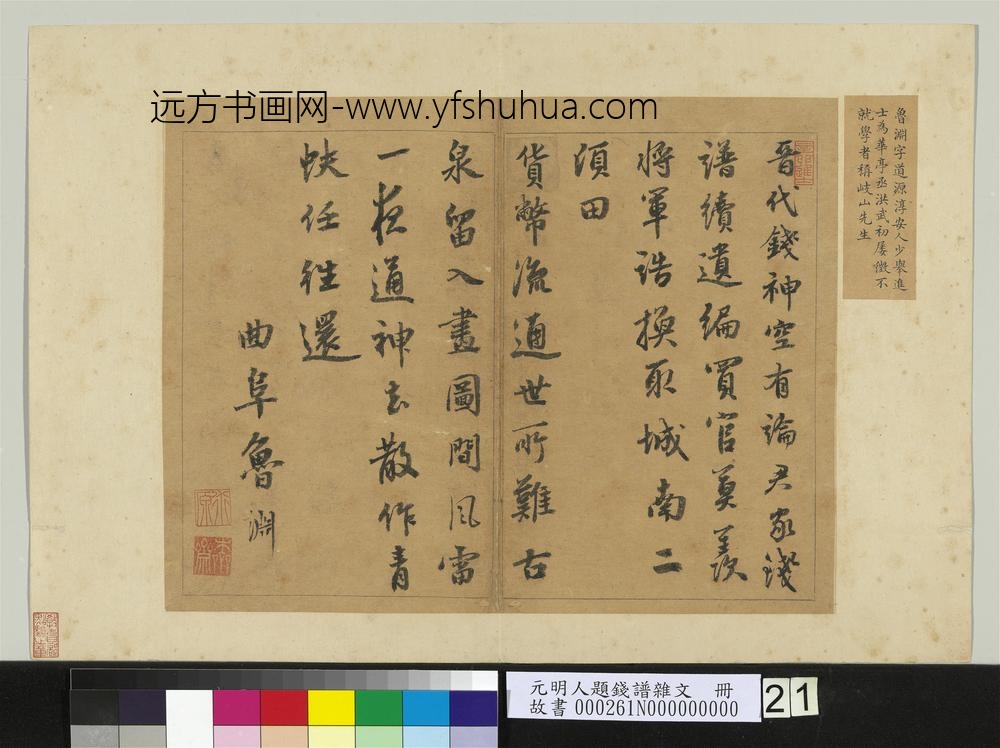 远方书画网-www.yfshuhua.com
魯淵字道源淳安人少舉進
士為華亭丞洪武初屡徵不
就學者稱岐山先生
晉代錢神空有論尹家錢
譜續遺編買官莫羨
將軍誥換取城南二
頃田
貨幣流通世所難古
泉留入畫圖間風雷
一夜通神去散作青
蚨任往還
曲阜魯淵
元明人題錢譜雜文 冊
故書 000261N000000000
21